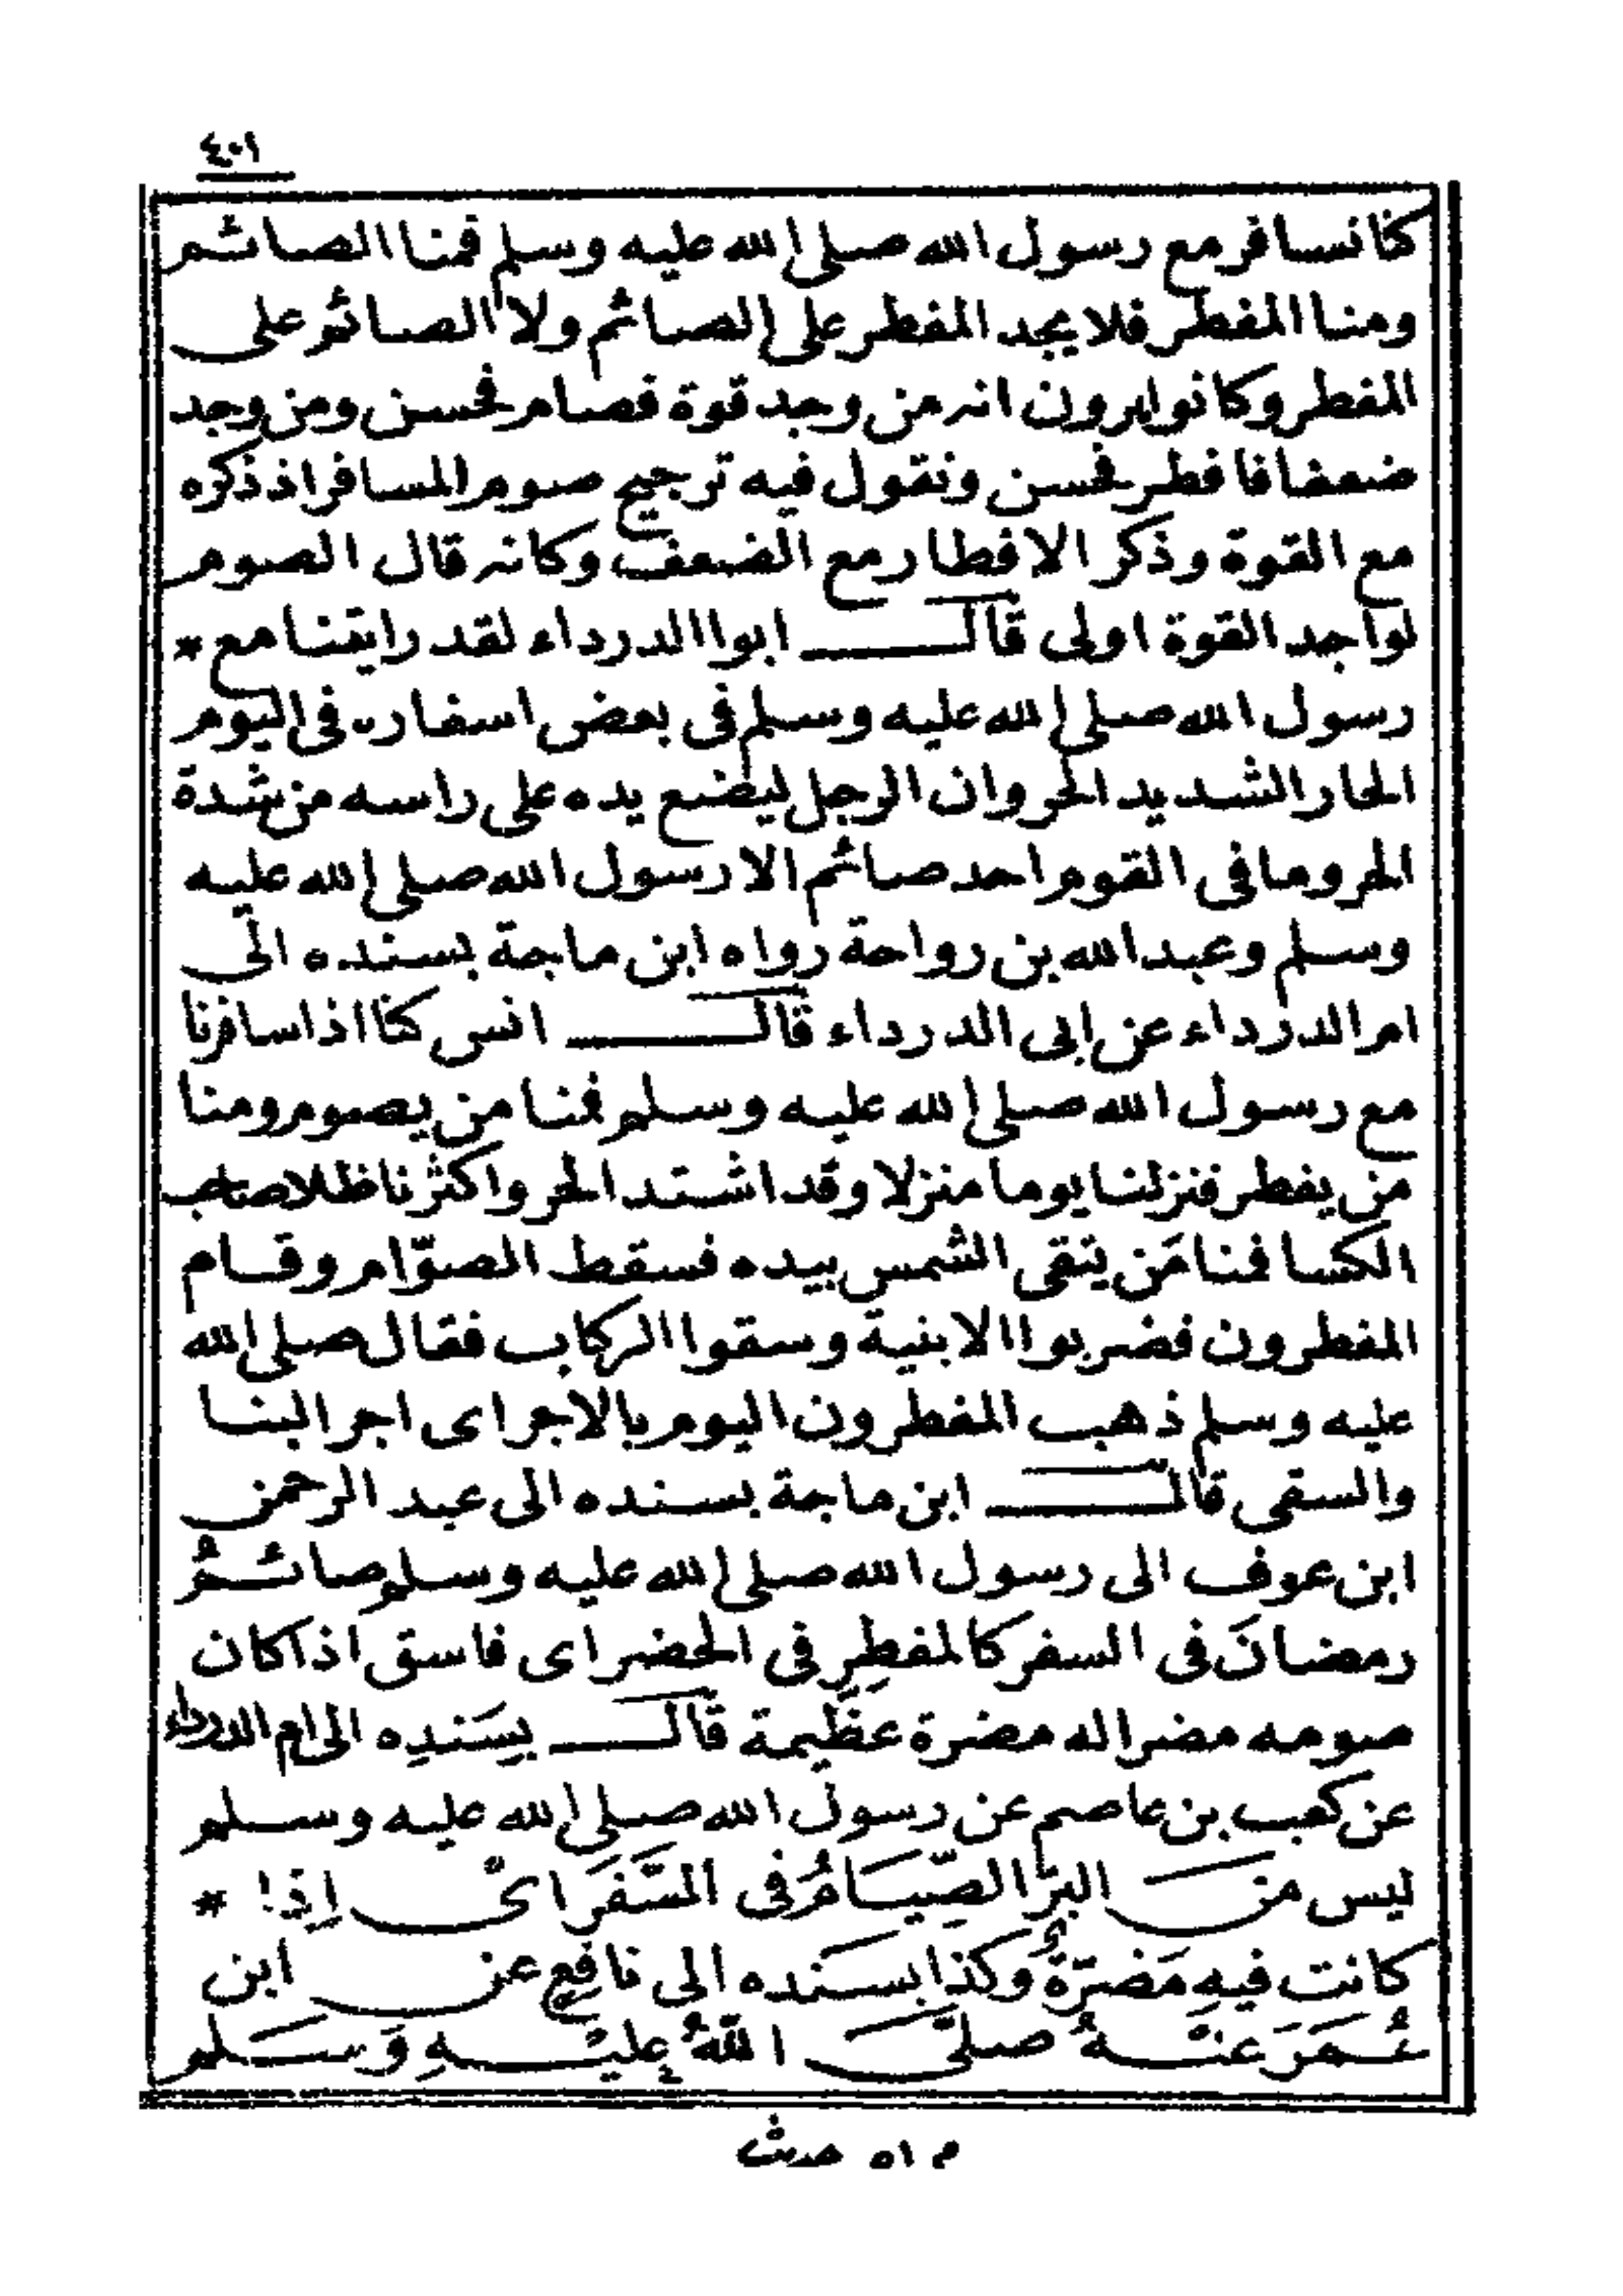 ٤٠١
كنا نسافر مع رسول الله صلى الله عليه وسلم فمنا الصائم
ومنا المفطر فلا يجد المفطر على الصائم ولا الصائم على
المفطر وكانوا يرون انه من وجد قوة فصام فحسن ومن وجد
ضعفا فافطر فحسن ونقول فيه ترجيح صوم المسافر اذ ذكره
مع القوة وذكر الافطار مع الضعف وكانه قال الصوم
لواجد القوة اولى قال ابوا الدرداء لقد رايتنا مع *
رسول الله صلى الله عليه وسلم فى بعض اسفاره فى اليوم
الحار الشديد الحر وان الرجل ليضع يده على راسه من شدة
الحر وما فى القوم احد صائم الا رسول الله صلى الله عليه
وسلم وعبد الله بن رواحة رواه ابن ماجة بسنده الى
ام الدرداء عن ابى الدرداء قال انس كنا اذا سافرنا
مع رسول الله صلى الله عليه وسلم فمنا من يصوم ومنا
من يفطر فنزلنا يوما منزلا وقد اشتد الحر واكثرنا ظلا صاحب
الكسا فمنا مَن يتقى الشمس بيده فسقط الصوّام وقام
المفطرون فضربوا الابنية وسقوا الركاب فقال صلى الله
عليه وسلم ذهب المفطرون اليوم بالاجر اى اجر البنا
والسقى قال ابن ماجة بسنده الى عبد الرحمن
ابن عوف الى رسول الله صلى الله عليه وسلم صائمُ
رمضانَ فى السفر كالمفطِرِ فى الحضر اى فاسق اذا كان
صومه مضرا له مضرة عظَيمة قال بِسَندِه الى ام الدرداء
عن كعب بن عاصم عن رسول الله صلى الله عليه وسلم
ليس من البرّ الصِّيَامُ فى السَّفَرَ اىْ اِذا *
كانت فيهِ مَضرّةٌ وكذا بسَنده الى نافِعٍ عن ابن
عُمَرَ عنهُ صلىَّ اللهُ عليْهِ وَسَلم
م ٥١ حدث